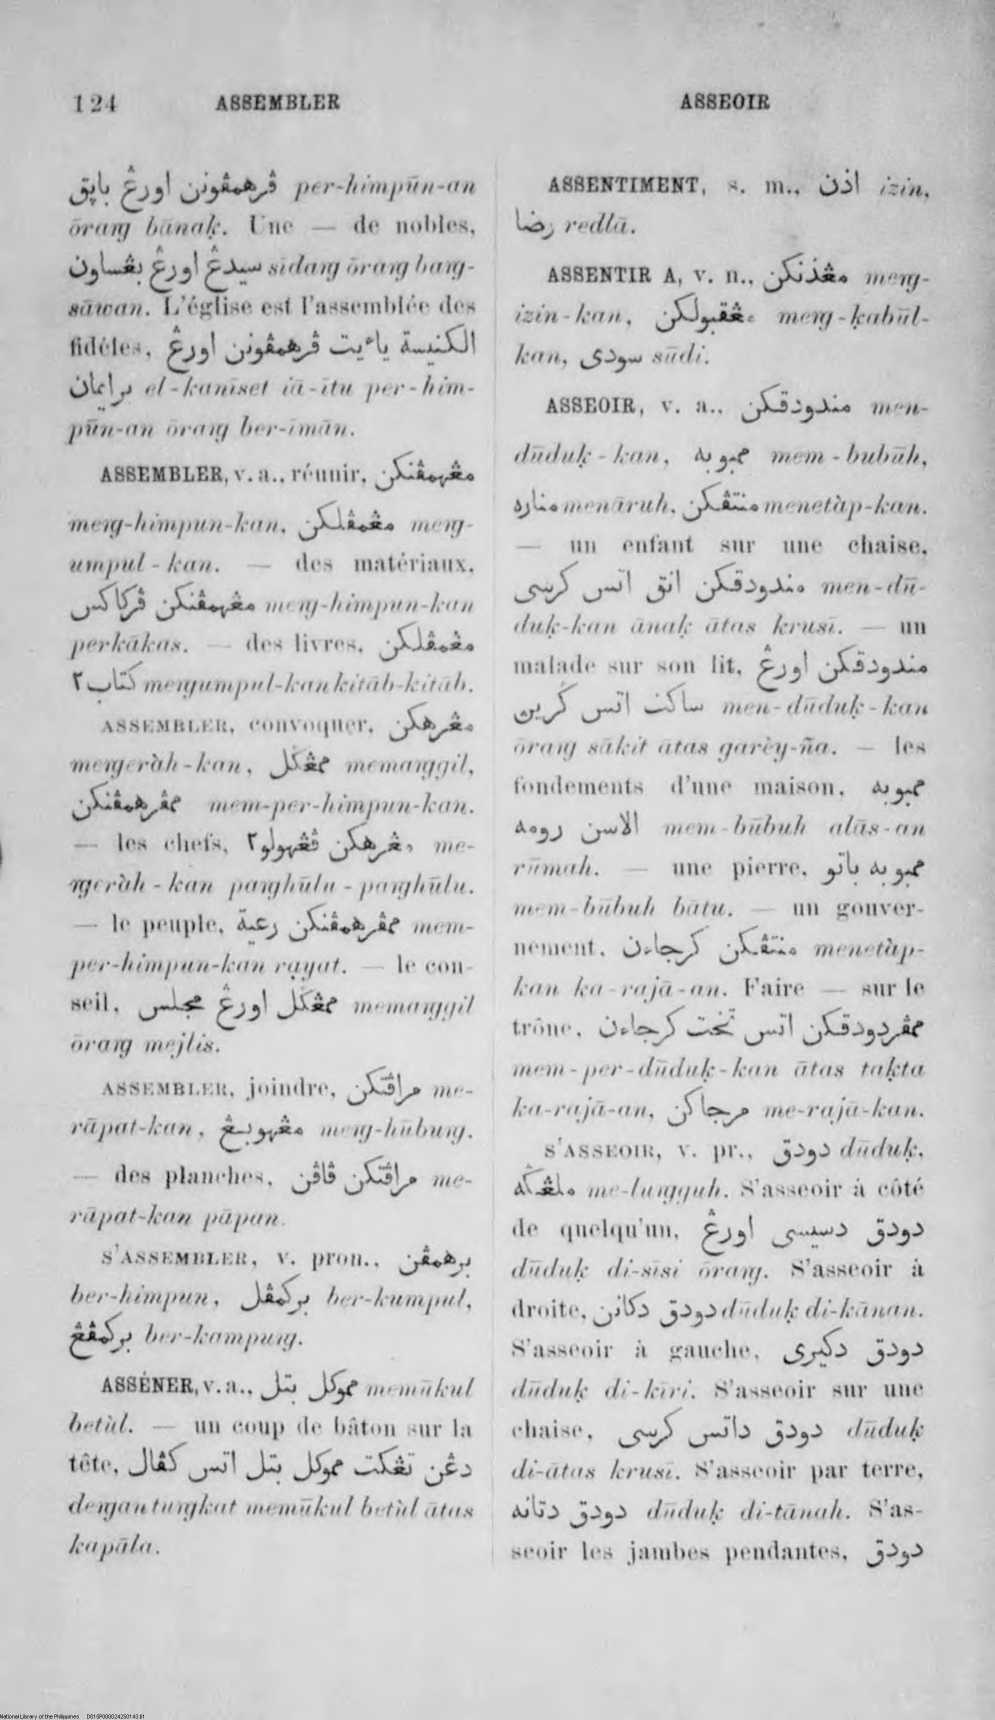 124 ASSEMBLER ASSEOIR
ڤرهمڤونن اورڠ باپق per-himpūn-an
ōraŋ bānaḳ. Une — de nobles,
سيدڠ اورڠ بڠساون sīdaŋ ōraŋ baŋ-
sāwan. L'église est l'assemblée des
fidéles, الكنيسة ياءيت ڤرهمڤونن اورڠ
برايمان el-kanīset iā-ītu per-him-
pūn-an ōraŋ ber-īmān.
ASSEMBLER, v. a., réunir, مڠهمڤنكن
meŋ-himpun-kan, مڠمڤلكن meŋ-
umpul-kan. — des matériaux,
مڠهمڤنكن ڤركاكس meŋ-himpun-kan
perkākas. — des livres, مڠمڤلكن
كتاب٢ meŋumpul-kan kitāb-kitāb.
ASSEMBLER, convoquer, مڠرهكن
meŋeràh-kan, ممڠݢل memaŋgil,
ممڤرهمڤنكن mem-per-himpun-kan.
— les chefs, مڠرهكن ڤڠهولو٢ me-
ŋeràh-kan paŋhūlu-paŋhūlu.
— le peuple, ممڤرهمڤنكن رعية mem-
per-himpun-kan raʿyat. — le con-
seil, ممڠݢل اورڠ مجلس memaŋgil
ōraŋ mejlis.
ASSEMBLER, joindre, مراڤتكن me-
rāpat-kan, مڠهوبڠ meŋ-hūbuŋ.
— des planches, مراڤتكن ڤاڤن me-
rāpat-kan pāpan.
S'ASSEMBLER, v. pron., برهمڤن
ber-himpun, بركمڤل ber-kumpul,
بركمڤڠ ber-kampuŋ.
ASSÉNER, v. a., مموكل بتل memūkul
betùl. — un coup de bâton sur la
tête, دڠن تڠكت مموكل بتل اتس كڤال
deŋan tuŋkat memūkul betùl ātas
kapāla.
ASSENTIMENT, s. m., اذن izin,
رضا redlā.
ASSENTIR A, v. n., مڠذنكن meŋ-
izin-kan, مڠقبولكن meŋ-ḳabūl-
kan, سودى sūdi.
ASSEOIR, v. a., مندودقكن men-
dūduḳ-kan, ممبوبه mem-bubūh,
مناره menāruh, منتڤكن menetàp-kan.
— un enfant sur une chaise,
مندودقكن انق اتس كرسى men-dū-
duḳ-kan ānaḳ ātas krusī. — un
malade sur son lit, مندودقكن اورڠ
ساكت اتس كرين men-dūduḳ-kan
ōraŋ sākit ātas garèy-ña. — les
fondements d'une maison, ممبوبه
الاسن رومه mem-būbuh alās-an
rūmah. — une pierre, ممبوبه باتو
mem-būbuh bātu. — un gouver-
nement, منتڤكن كرجاءن menetàp-
kan ka-rajā-an. Faire — sur le
trône, ممڤردودقكن اتس تخت كرجاءن
mem-per-dūduḳ-kan ātas taḳta
ka-rajā-an, مرجاكن me-rajā-kan.
S'ASSEOIR, v. pr., دودق dūduḳ,
ملڠݢه me-luŋguh. S'asseoir à côté
de quelqu'un, دودق دسيسى اورڠ
dūduḳ di-sīsi ōraŋ. S'asseoir à
droite, دودق دكانن dūduḳ di-kānan.
S'asseoir à gauche, دودق دكيرى
dūduḳ di-kīri. S'asseoir sur une
chaise, دودق داتس كرسى dūduḳ
di-ātas krusī. S'asseoir par terre,
دودق دتانه dūduḳ di-tānah. S'as-
seoir les jambes pendantes, دودق
National Library of the Philippines